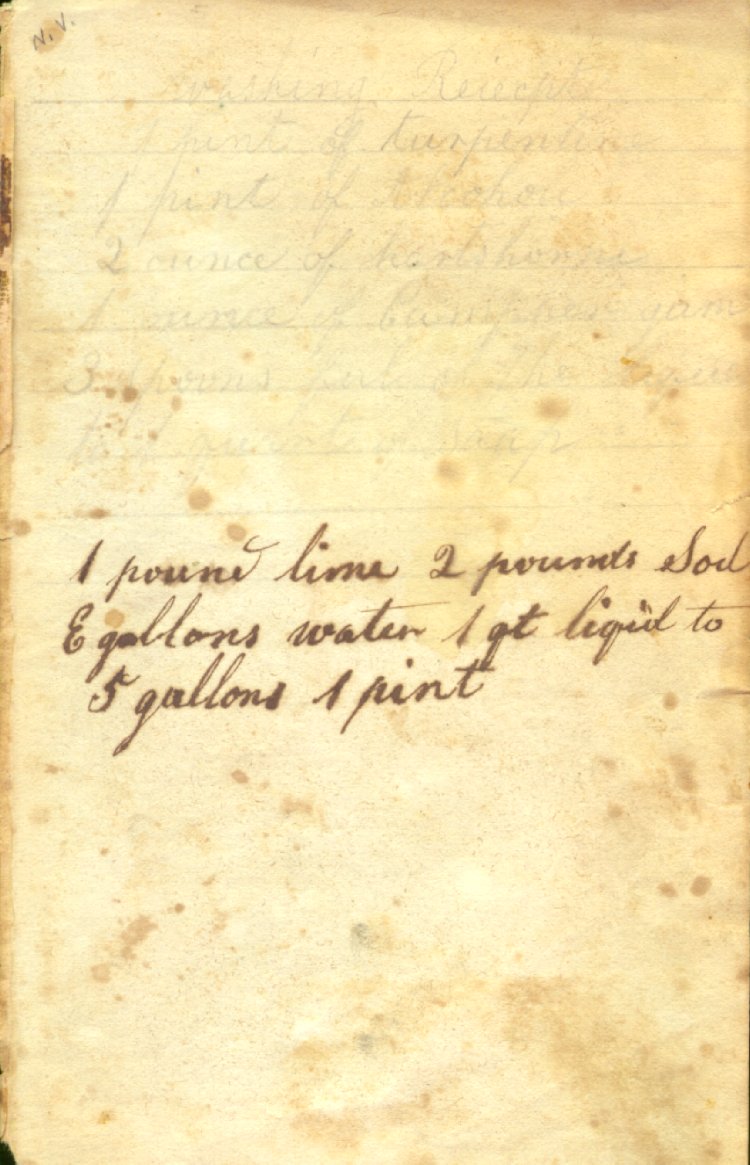 N.V.
washing Reiecpt
1 pint of turpentine
1 pint of Alcohol
2 ounce of hartshorne
1 ounce of Campher gum
3 spoons full of the
to 1 quart of soap
1 pound lime 2 pounds Sod
E gallons water 1 qt liqid to
5 gallons 1 pint